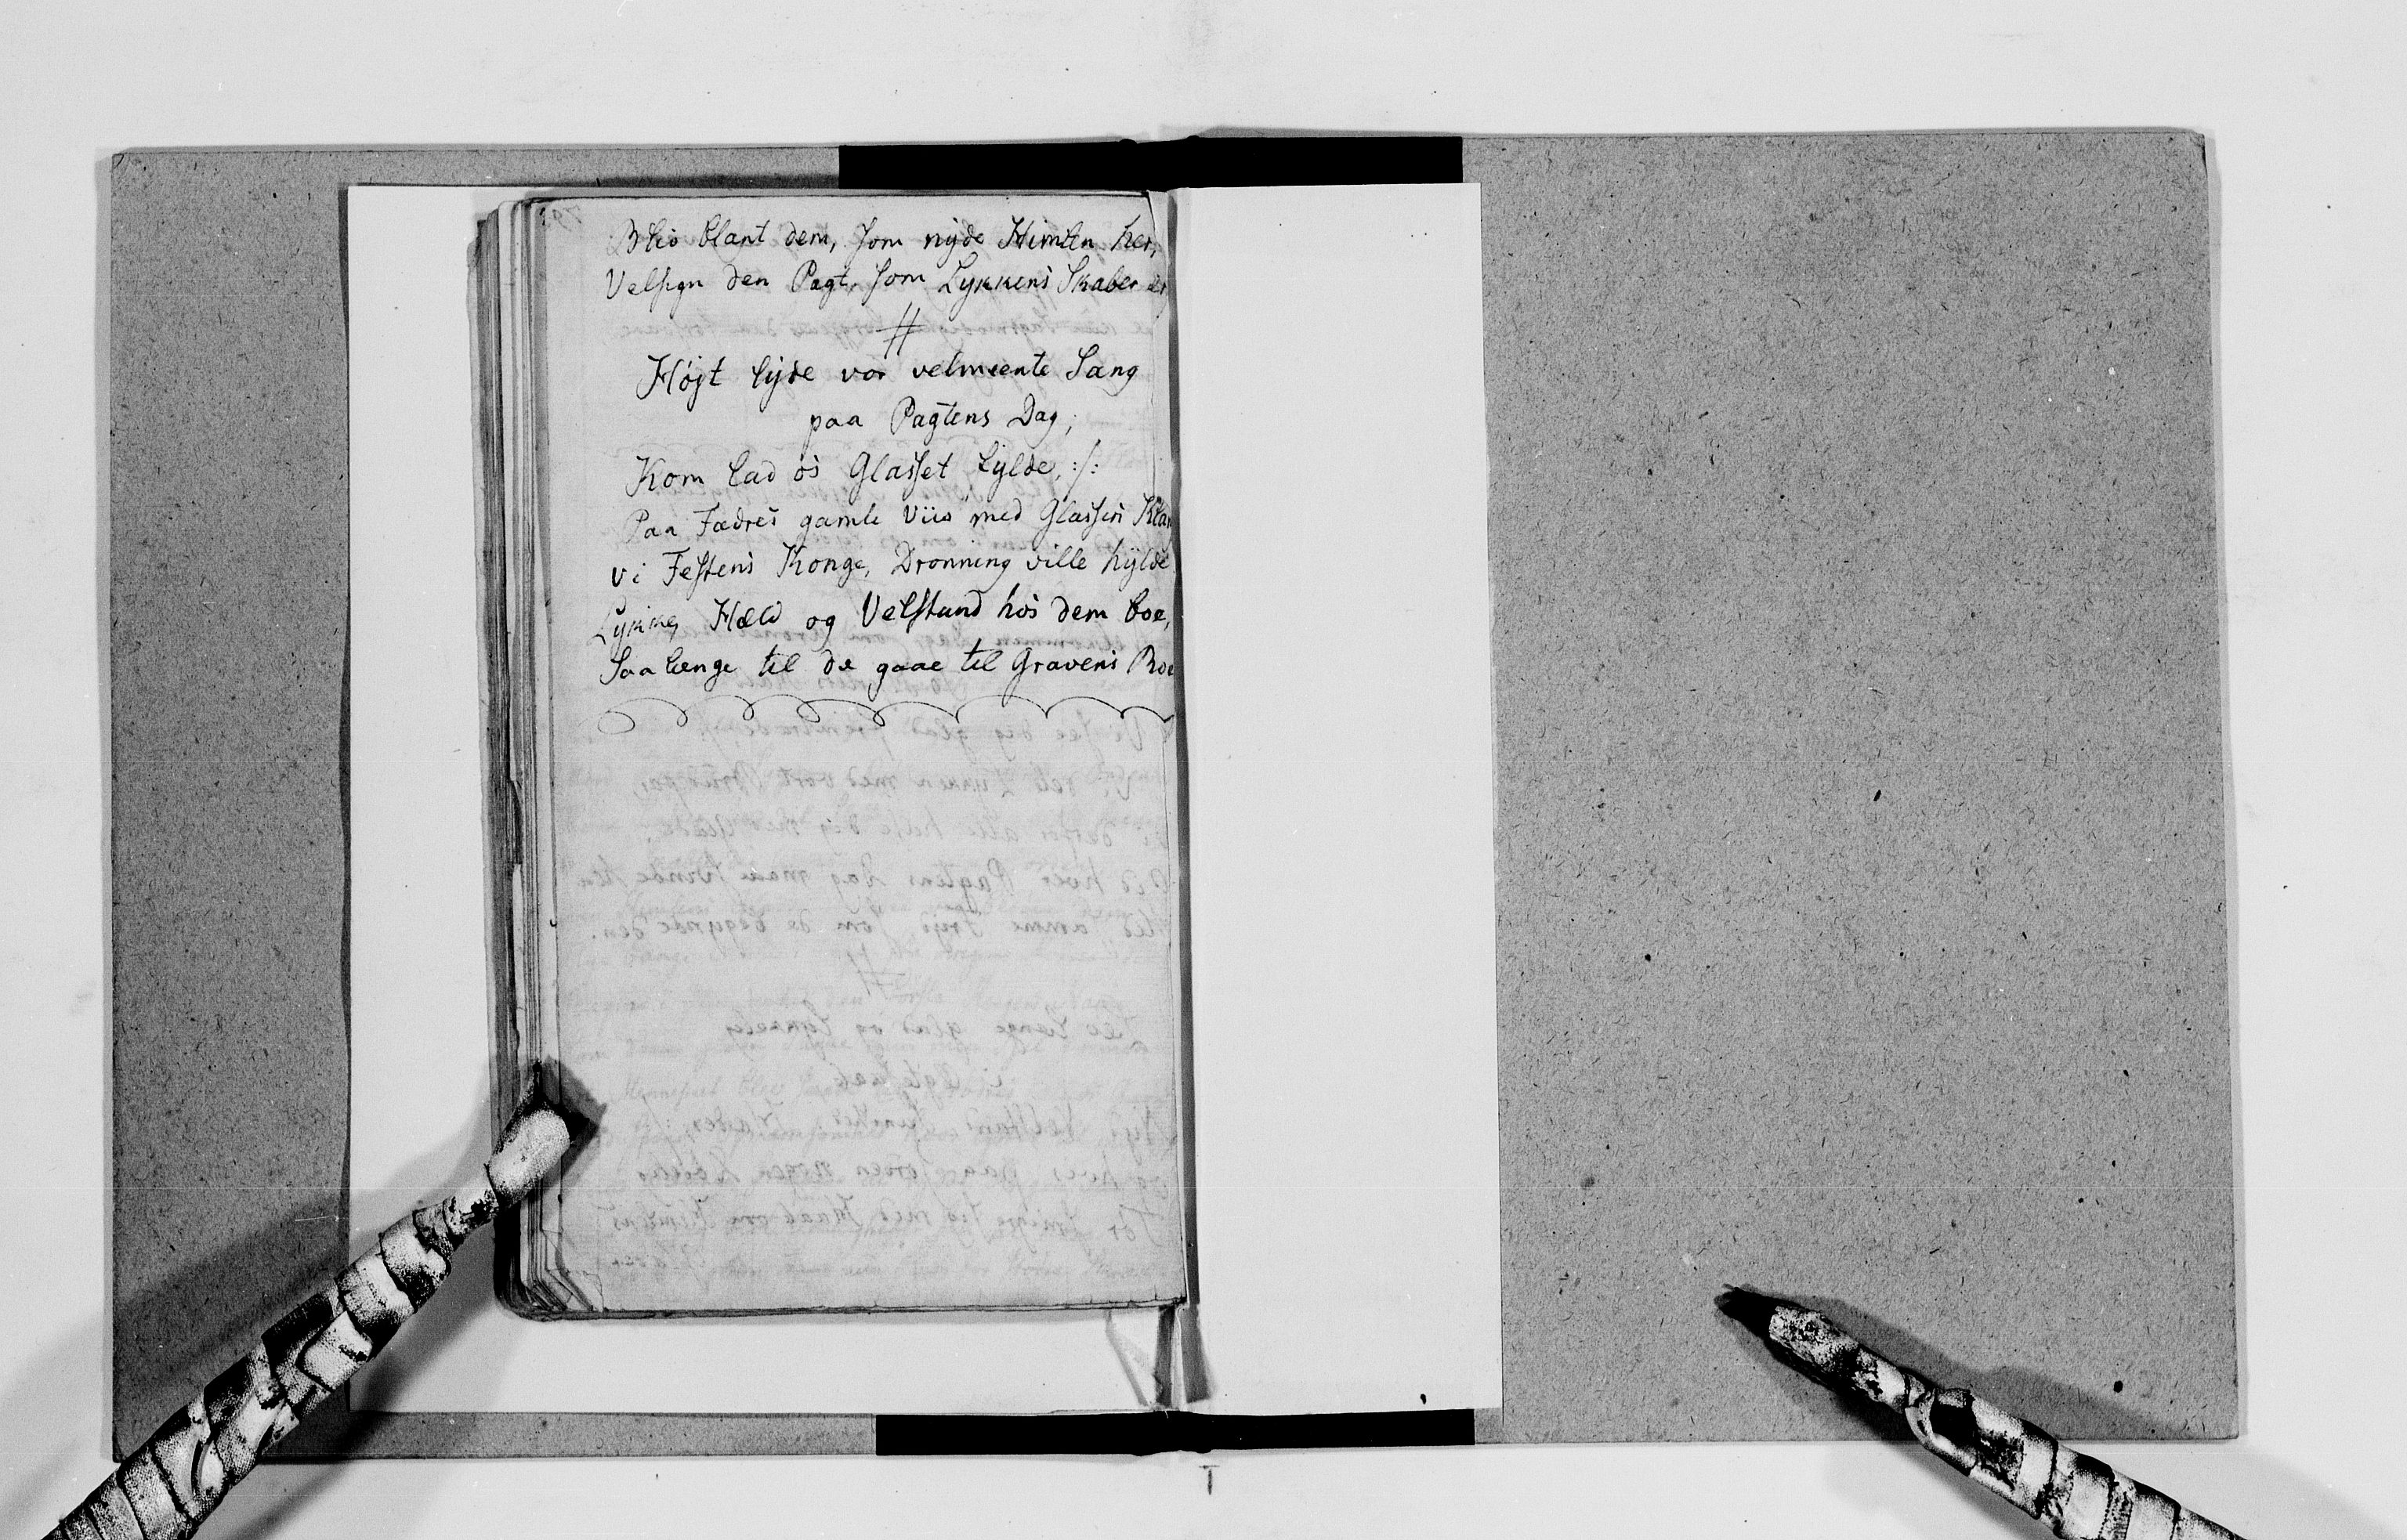 Bliv blant dem, som nyde Himlen her,
Velsign den Pagt, som Lykkens Skaber er
#
Højt lyde vor velmeente Sang
paa Pagtens Dag,
Kom lad os Glasset fylde, :/:
Paa Fædres gamle Viis med Glassets
vi Festens Konge, Dronning ville hylde
Lykke, Held og Velstand hos dem boe,
Saa længe til de gaae til Gravens Roe